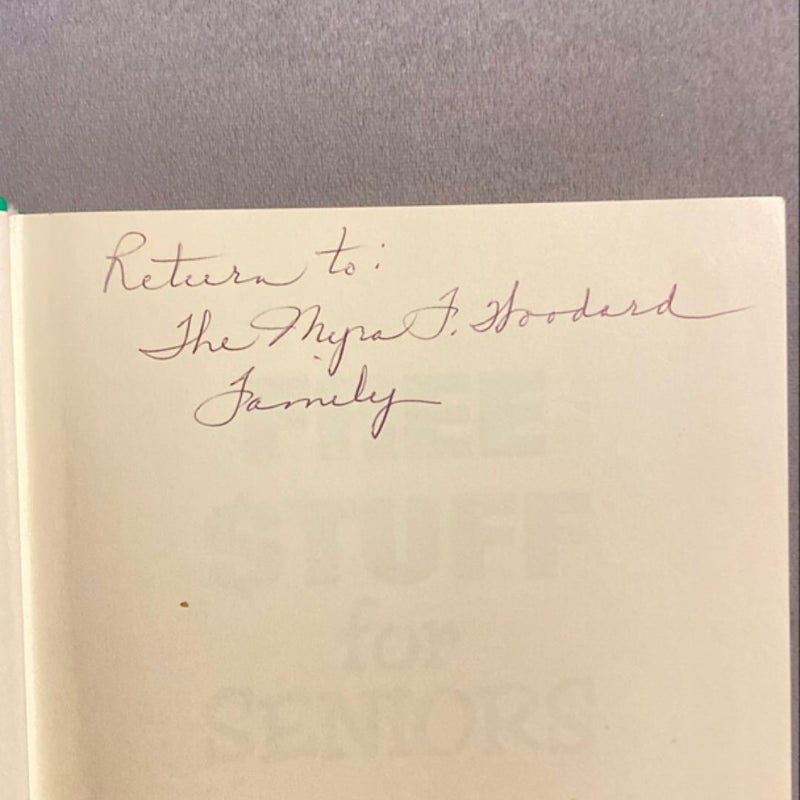 Return to:
The Myra F. Woodard
Family
FREE
$TUFF
for
SENIORS